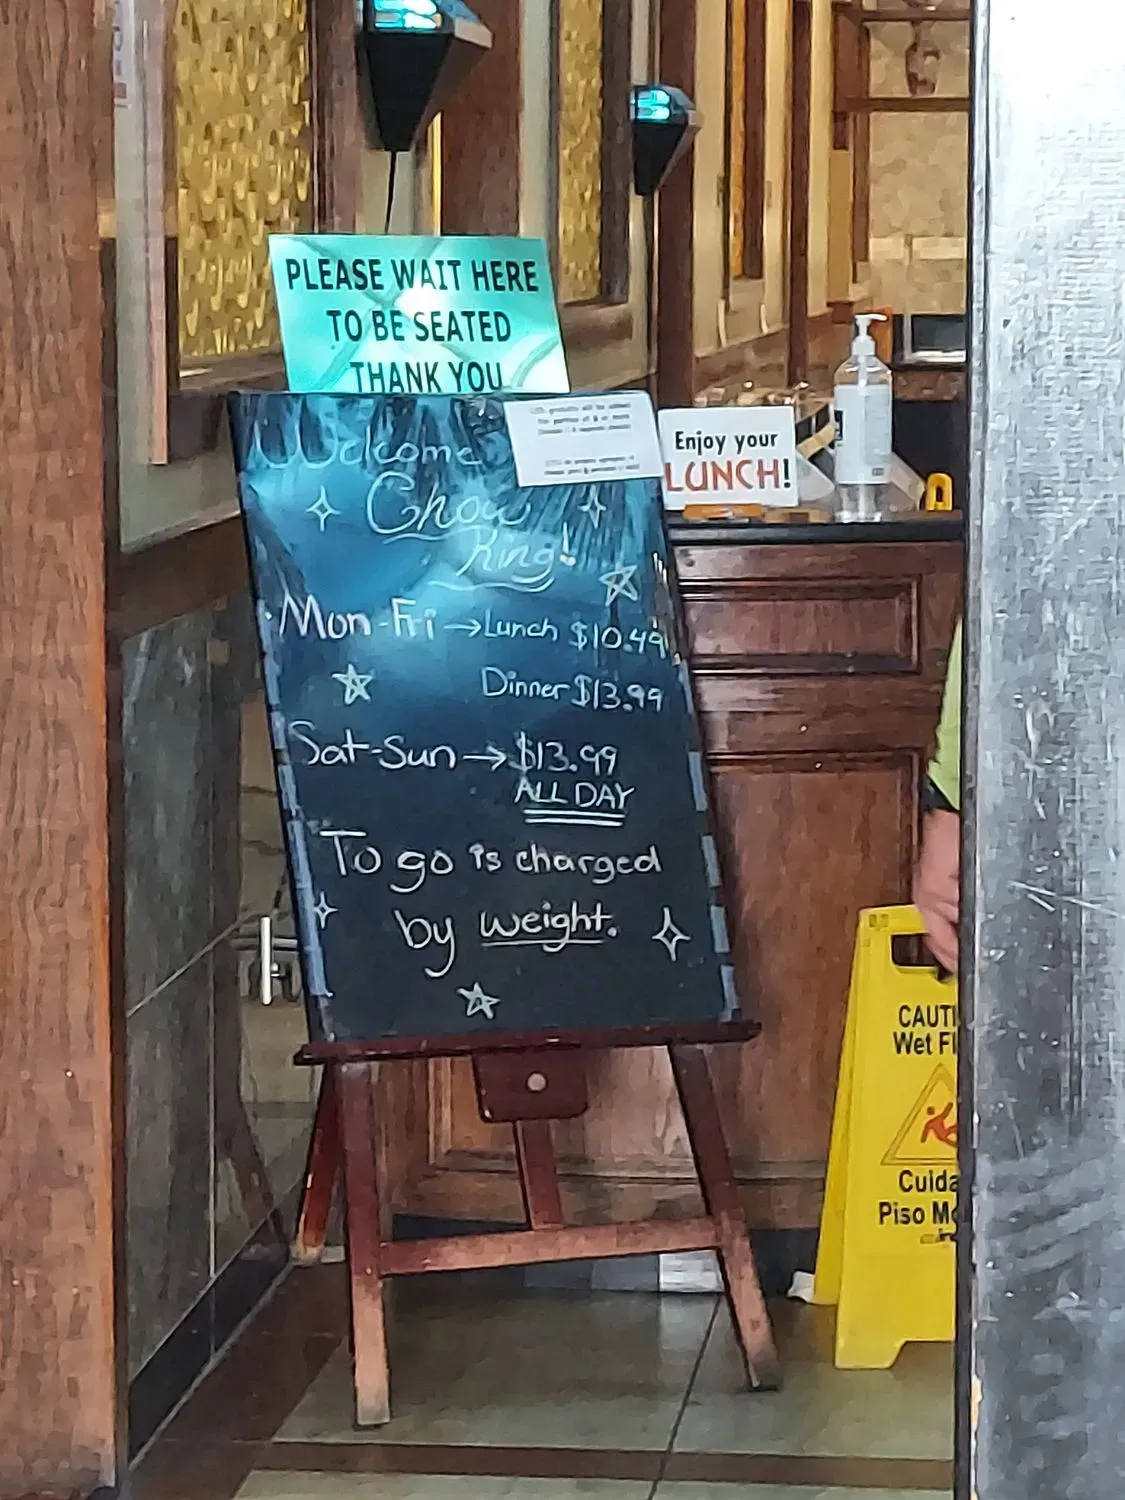 PLEASE WAIT HERE
TO BE SEATED
THANK YOU
Welcome
Chow
King!
Mon-Fri → Lunch $10.49
Dinner $13.99
Sat-Sun → $13.99
ALL DAY
To go is charged
by weight.
Enjoy your
LUNCH!
CAUTI
Wet Fl
Cuida
Piso Mo